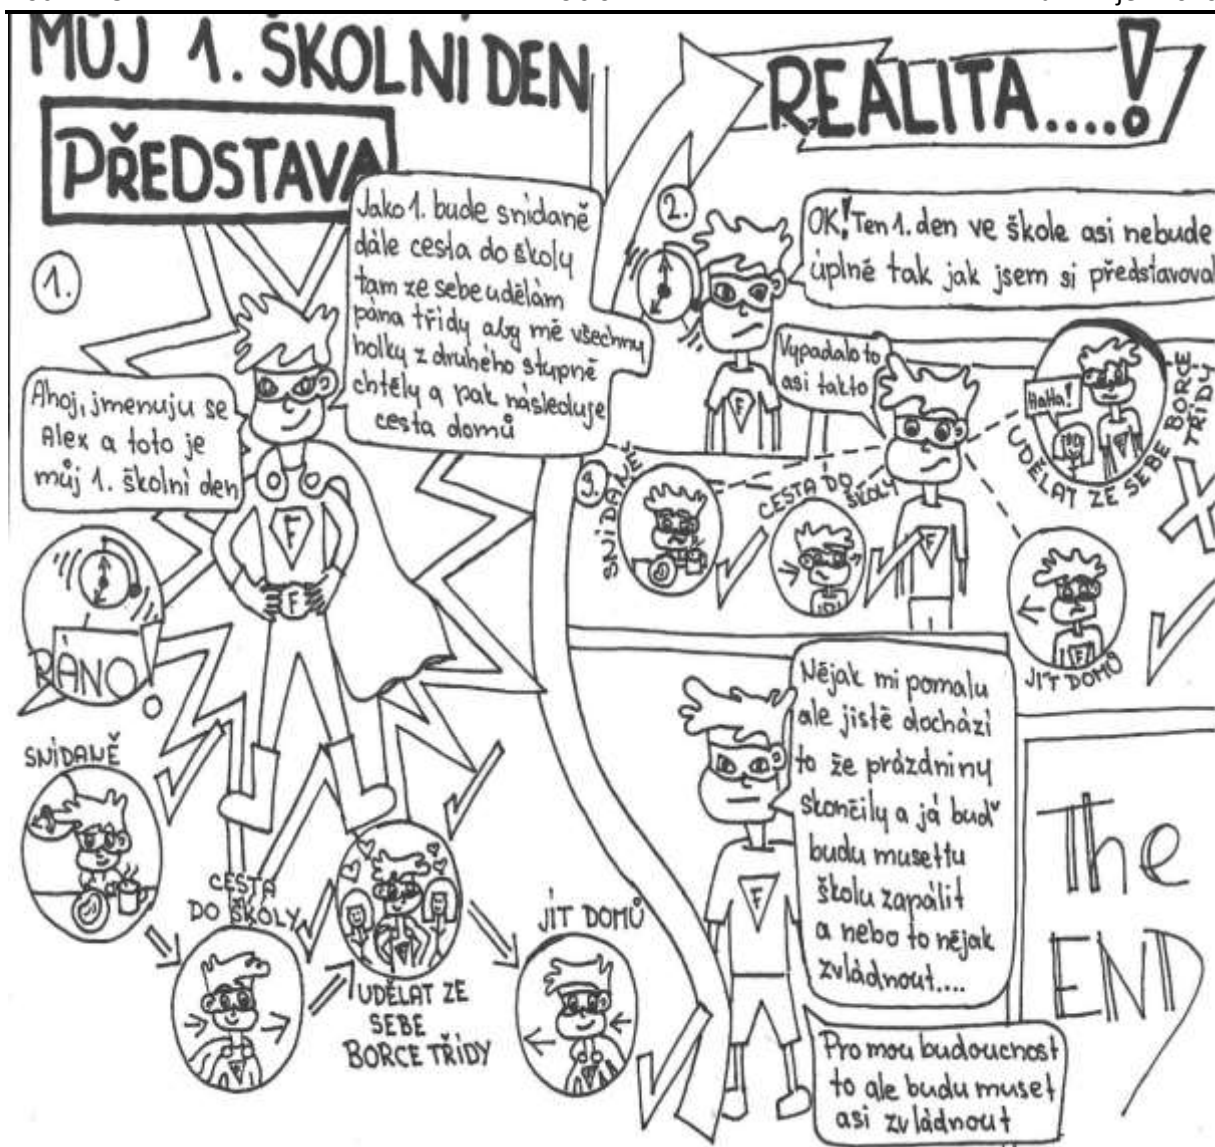 MŮJ 1. ŠKOLNÍ DEN
PŘEDSTAVA
1.
Ahoj, jmenuju se
Alex a toto je
můj 1. školní den
Jako 1. bude snídaně
dále cesta do školy
tam ze sebe udělám
pána třídy aby mě všechny
holky z druhého stupně
chtěly a pak následuje
cesta domů
F
F
RÁNO!
SNÍDANĚ
CESTA
DO ŠKOLY
UDĚLAT ZE
SEBE
BORCE TŘÍDY
JÍT DOMŮ
REALITA....!
2.
OK! Ten 1. den ve škole asi nebude
úplně tak jak jsem si představoval
F
Vypadalo to
asi takto
3.
SNÍDANĚ
CESTA DO
ŠKOLY
F
HaHa!
UDĚLAT ZE SEBE BORCE
TŘÍDY
JÍT DOMŮ
F
Nějak mi pomalu
ale jistě dochází
to že prázdniny
skončily a já buď
budu muset tu
školu zapálit
a nebo to nějak
zvládnout....
F
Pro mou budoucnost
to ale budu muset
asi zvládnout
The
END